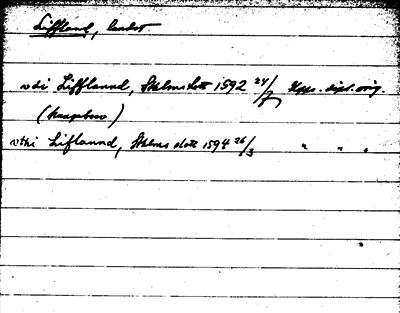 Liffland, landet
vdi Lifflannd, Sthlms slott 1592 24/7 Upps. dipl. orig.
vthi Liflannd, Sthlms slott 1594 26/3 " " "